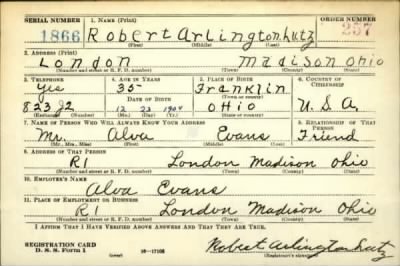 SERIAL NUMBER 1. NAME (Print) ORDER NUMBER
1866 Robert Arlington Lutz 257
(First) (Middle) (Last)
2. ADDRESS (Print)
London Madison Ohio
(Number and street or R. F. D. number) (Town) (County) (State)
3. TELEPHONE 4. AGE IN YEARS 5. PLACE OF BIRTH 6. COUNTRY OF CITIZENSHIP
Yes 35 Franklin
DATE OF BIRTH (Town or county)
823J2 12 23 1904 OHIO U.S.A.
(Exchange) (Number) (Mo.) (Day) (Yr.) (State or country)
7. NAME OF PERSON WHO WILL ALWAYS KNOW YOUR ADDRESS 8. RELATIONSHIP OF THAT PERSON
Mr. Alva Evans Friend
(Mr., Mrs., Miss) (First) (Middle) (Last)
9. ADDRESS OF THAT PERSON
R1 London Madison Ohio
(Number and street or R. F. D. number) (Town) (County) (State)
10. EMPLOYER'S NAME
Alva Evans
11. PLACE OF EMPLOYMENT OR BUSINESS
R1 London Madison Ohio
(Number and street or R. F. D. number) (Town) (County) (State)
I AFFIRM THAT I HAVE VERIFIED ABOVE ANSWERS AND THAT THEY ARE TRUE.
REGISTRATION CARD
D. S. S. Form 1 (over) 16—17105 Robert Arlington Lutz
(Registrant's signature)